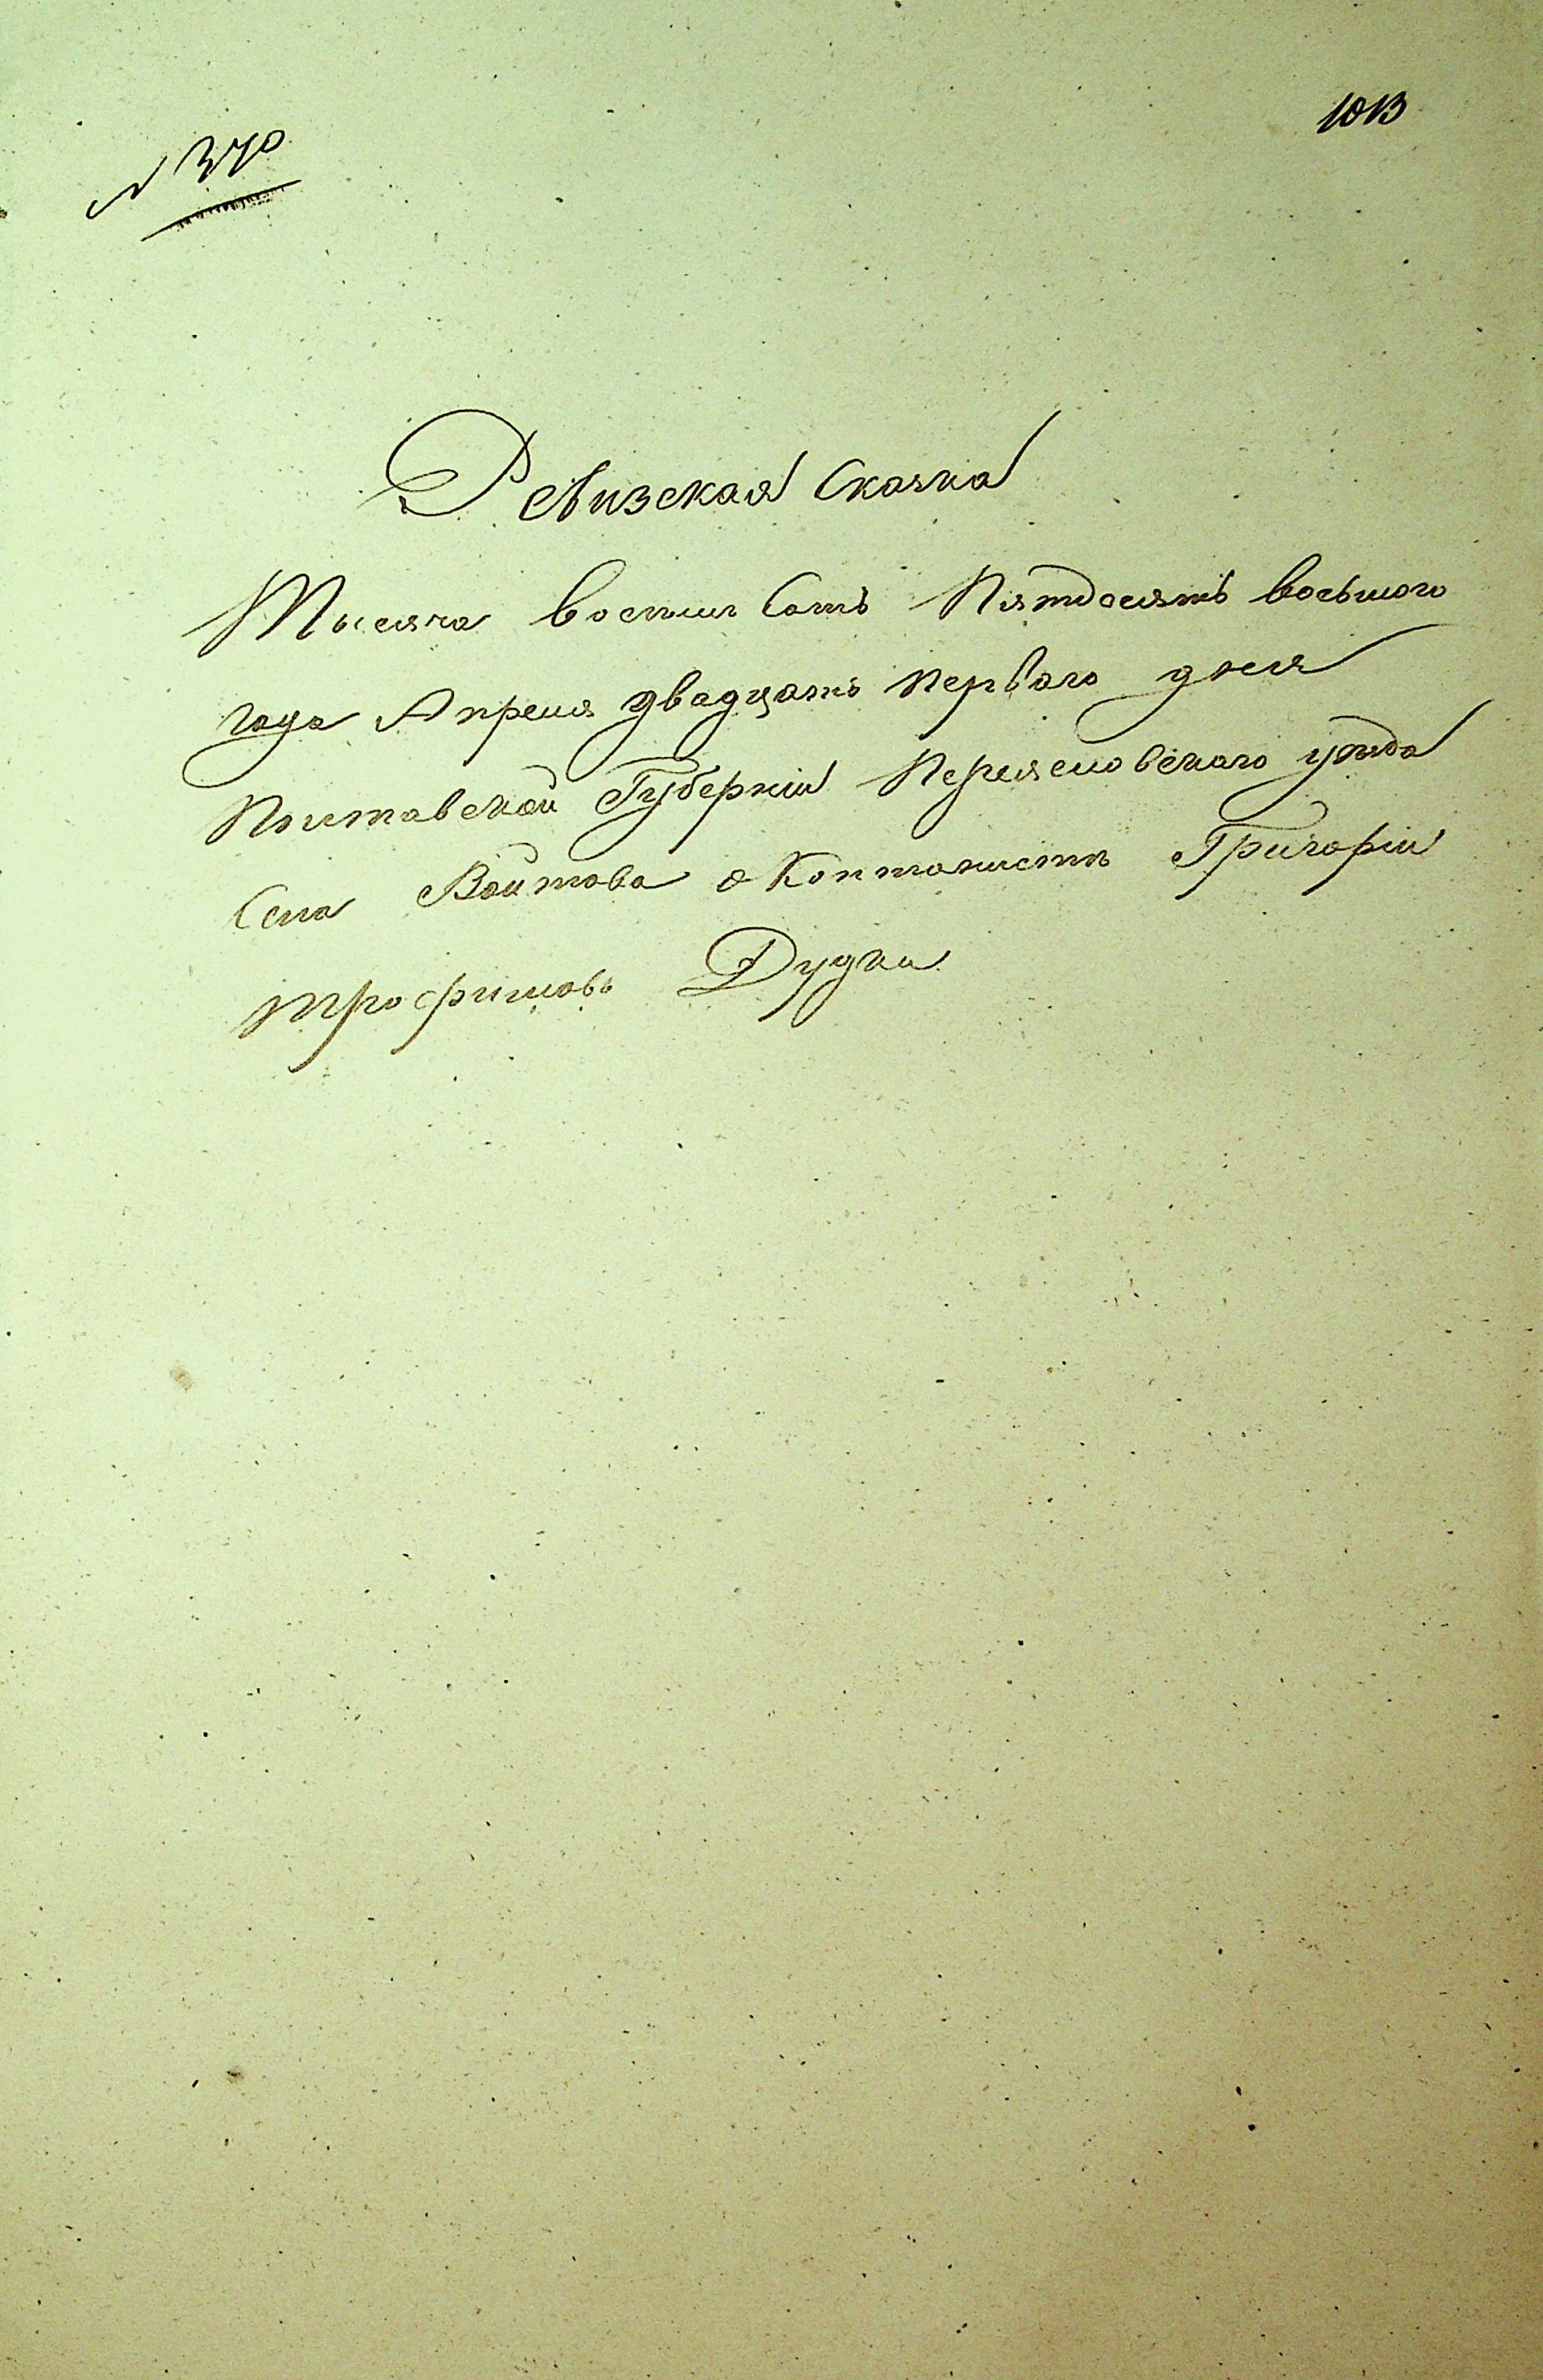 1013
№ 370
Ревизская Сказка
Тысяча восемь Сотъ Пятдесятъ восьмого
года Апреля двадцать первого дня
Полтавской Губернии Переясловского уезда
Села Войтова о Кантонисте Григории
трофимовъ Дудки